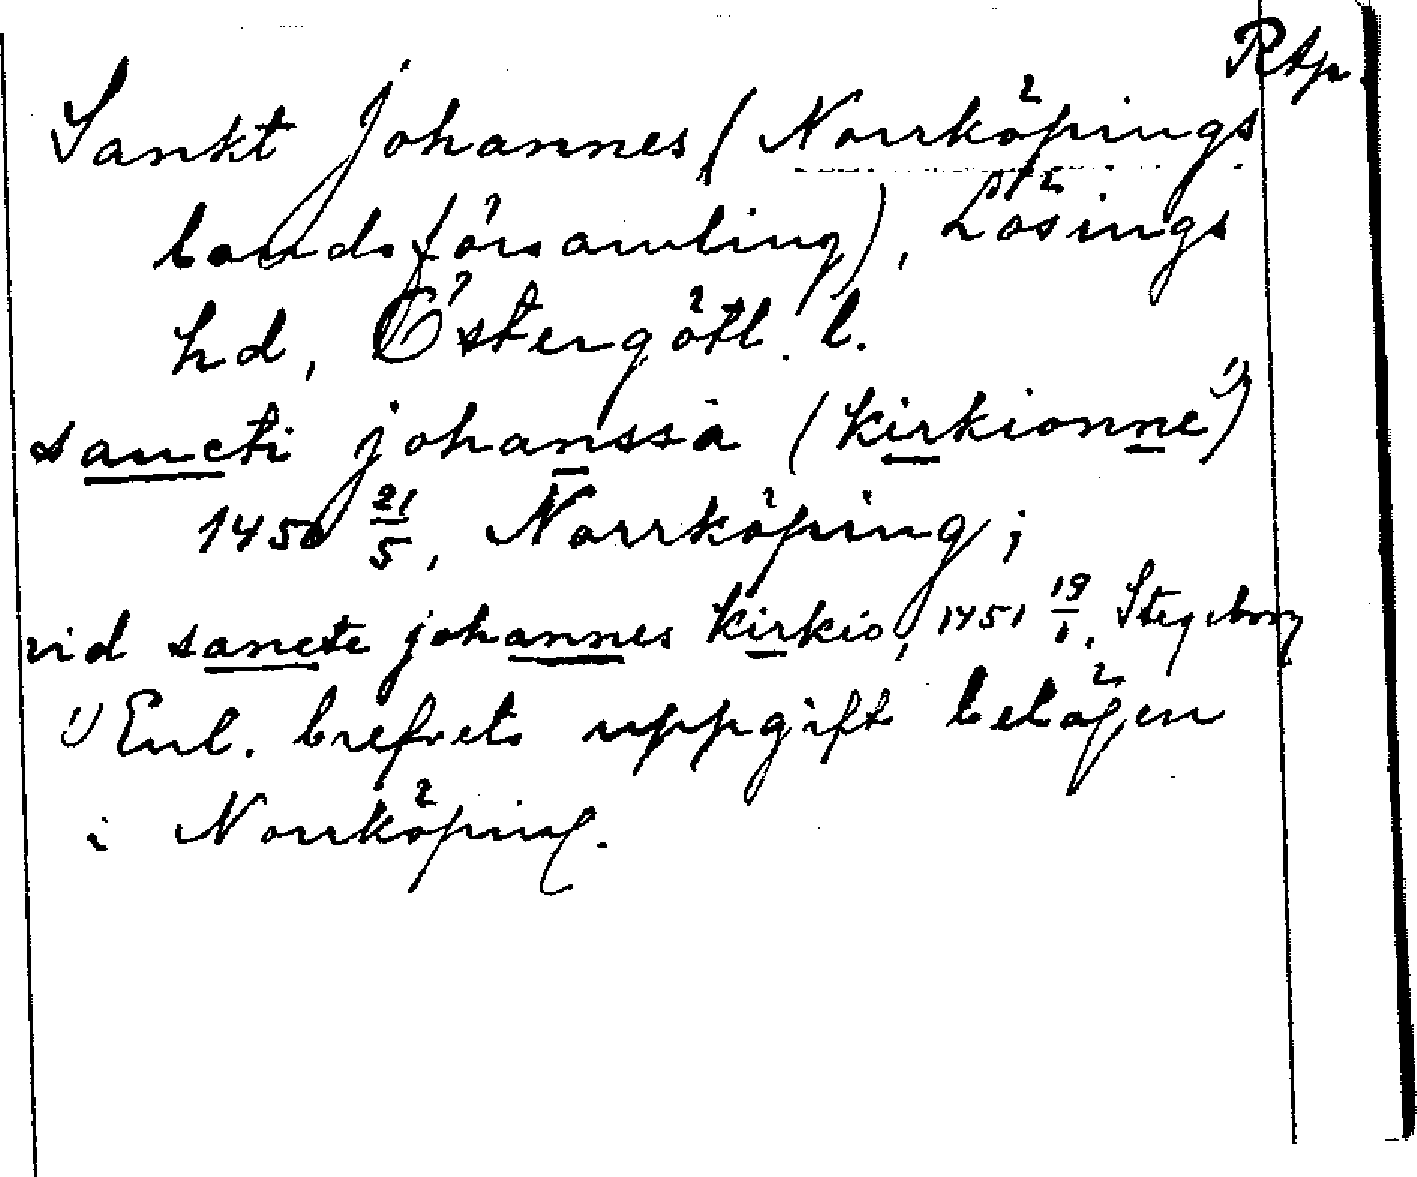 Rtp.
Sankt Johannes (Norrköpings
landsförsamling), Lösings
hd, Östergötl. l.
sancti johanssa (kirkionne¹⁾)
1450 21/5, Norrköping;
vid sancte johannes kirkio, 1451 19/1, Stegeborg
¹⁾ Enl. brefvets uppgift belägen
i Norrköping.